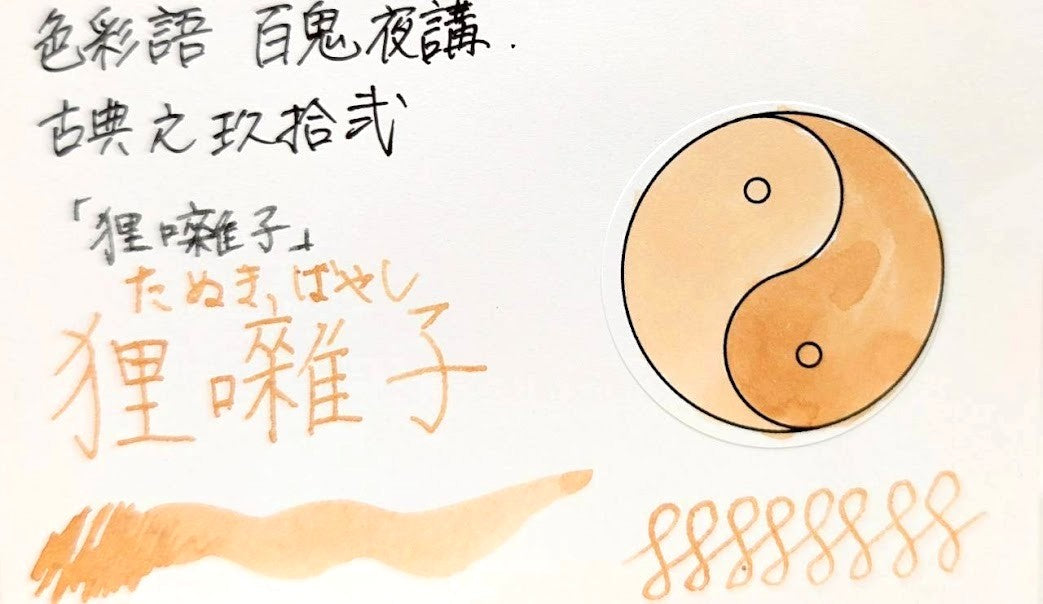 色彩語 百鬼夜講.
古典之玖拾弐
「狸囃子」
たぬきばやし
狸囃子